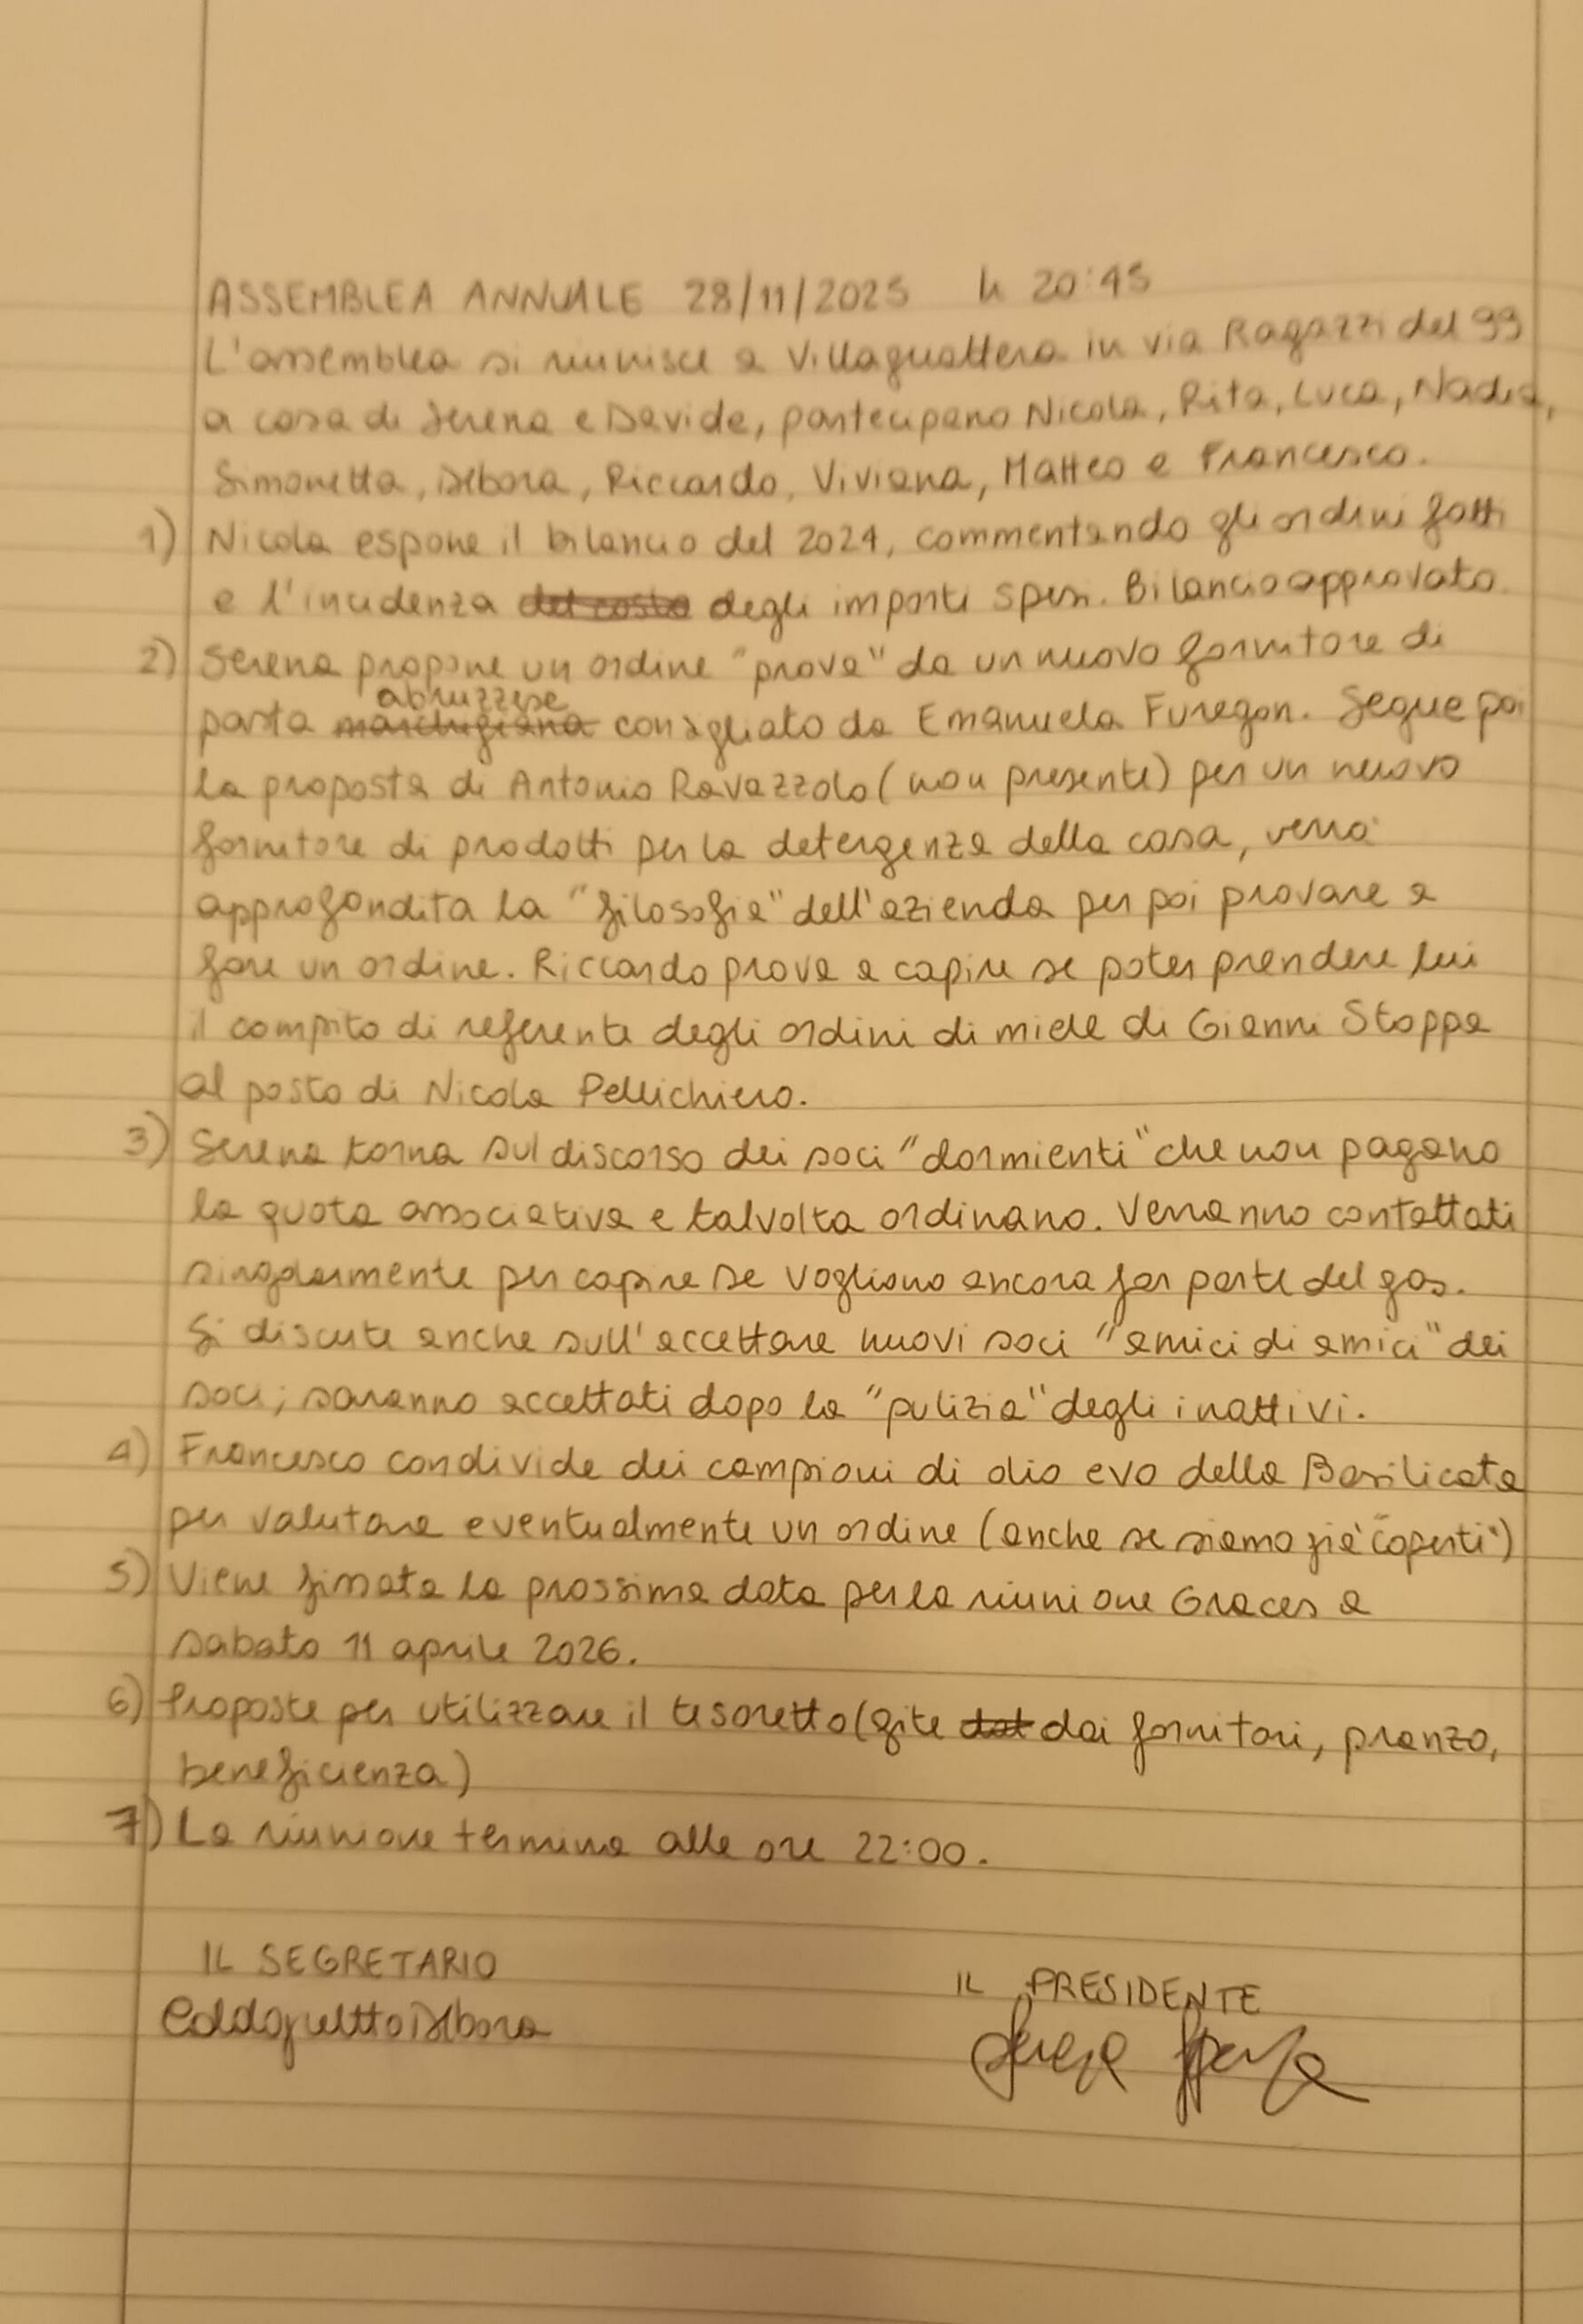 ASSEMBLEA ANNUALE 28/11/2025 h 20:45
L'assemblea si riunisce a Villaguattera in via Ragazzi del 99
a casa di Serena e Davide, partecipano Nicola, Rita, Luca, Nadia,
Simonetta, Debora, Riccardo, Viviana, Matteo e Francesco.
1) Nicola espone il bilancio del 2024, commentando gli ordini fatti
e l'incidenza del costo degli importi spesi. Bilancio approvato.
2) Serena propone un ordine "prova" da un nuovo fornitore di
abruzzese
pasta marchigiana consigliato da Emanuela Furegon. Segue poi
la proposta di Antonio Ravazzolo (non presente) per un nuovo
fornitore di prodotti per la detergenza della casa, verrà
approfondita la "filosofia" dell'azienda per poi provare a
fare un ordine. Riccardo prova a capire se poter prendere lui
il compito di referente degli ordini di miele di Gianni Stoppa
al posto di Nicola Pellichiero.
3) Serena torna sul discorso dei soci "dormienti" che non pagano
la quota associativa e talvolta ordinano. Verranno contattati
singolarmente per capire se vogliono ancora far parte del gas.
Si discute anche sull'accettare nuovi soci "amici di amici" dei
soci; saranno accettati dopo la "pulizia" degli inattivi.
4) Francesco condivide dei campioni di olio evo della Basilicata
per valutare eventualmente un ordine (anche se siamo già "coperti")
5) Viene fissata la prossima data per la riunione Graces a
sabato 11 aprile 2026.
6) Proposte per utilizzare il tesoretto (gite dai fornitori, pranzo,
beneficienza)
7) La riunione termina alle ore 22:00.
IL SEGRETARIO
IL PRESIDENTE
Debora
Serena